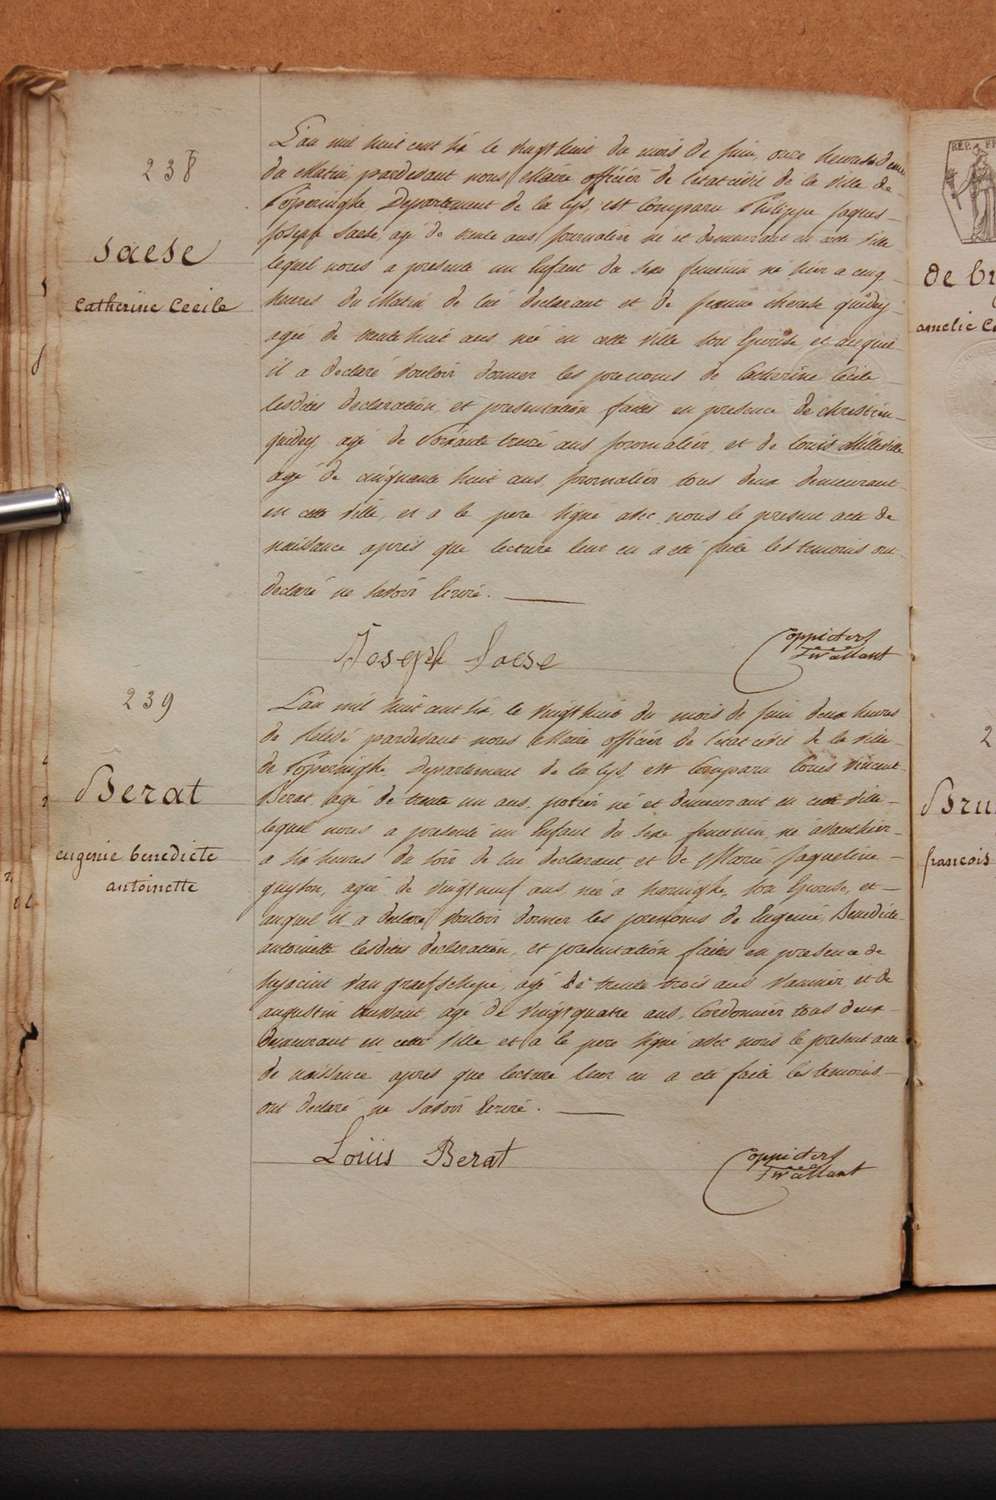 238
Saese
Catherine Cecile
L'an mil huit cent six le vingthuit du mois de juin, onze heures
du Matin, pardevant nous Maire officier de l'etat civil de la ville de
Poperinghe Departement de la Lys, est Comparu Philippe jaques
joseph Saese, agé de trente ans, journalier né et demeurant en cette ville
lequel nous a presenté un Enfant du sexe feminin né hier a cinq
heures du Matin de lui declarant et de jeanne therese quidey
agée de trente huit ans née en cette ville son Epouse et auquel
il a declaré vouloir donner les prenoms de Catherine Cecile
lesdites declaration, et presentation faites en presence de
quidey agé de Soixante treize ans journalier, et de Louis
agé de cinquante huit ans, journalier tous deux demeurant
en cette ville, et a le pere signé avec nous le present acte de
naissance après que lecture leur en a eté faite les temoins ont
declaré ne savoir Ecrire.
Joseph Saese
Coppieters
T'Wallant
239
Berat
eugenie benedicte
antoinette
L'an mil huit cent six le vingthuit du mois de juin deux heures
de pardevant nous Maire officier de l'etat civil de la ville
de Poperinghe Departement de la Lys, est Comparu Louis vincent
Berat, agé de trente un ans, potier né et demeurant en cette ville
lequel nous a presenté un Enfant du sexe feminin, né avanthier
a six heures du soir de lui declarant et de Marie jaqueline
guyton, agée de vingtneuf ans née a son Epouse, et
auquel il a declaré vouloir donner les prenoms de Eugenie Benedicte
antoinette lesdites declaration, et presentation faites en presence de
hyacint agé de trente trois ans vannier, et de
augustin agé de vingtquatre ans, Cordonnier tous deux
demeurant en cette ville et a le pere signé avec nous le present acte
de naissance après que lecture leur en a eté faite les temoins
ont declaré ne savoir Ecrire.
Louis Berat
Coppieters
T'Wallant
REP.
de
amelie
2
Bru
francois